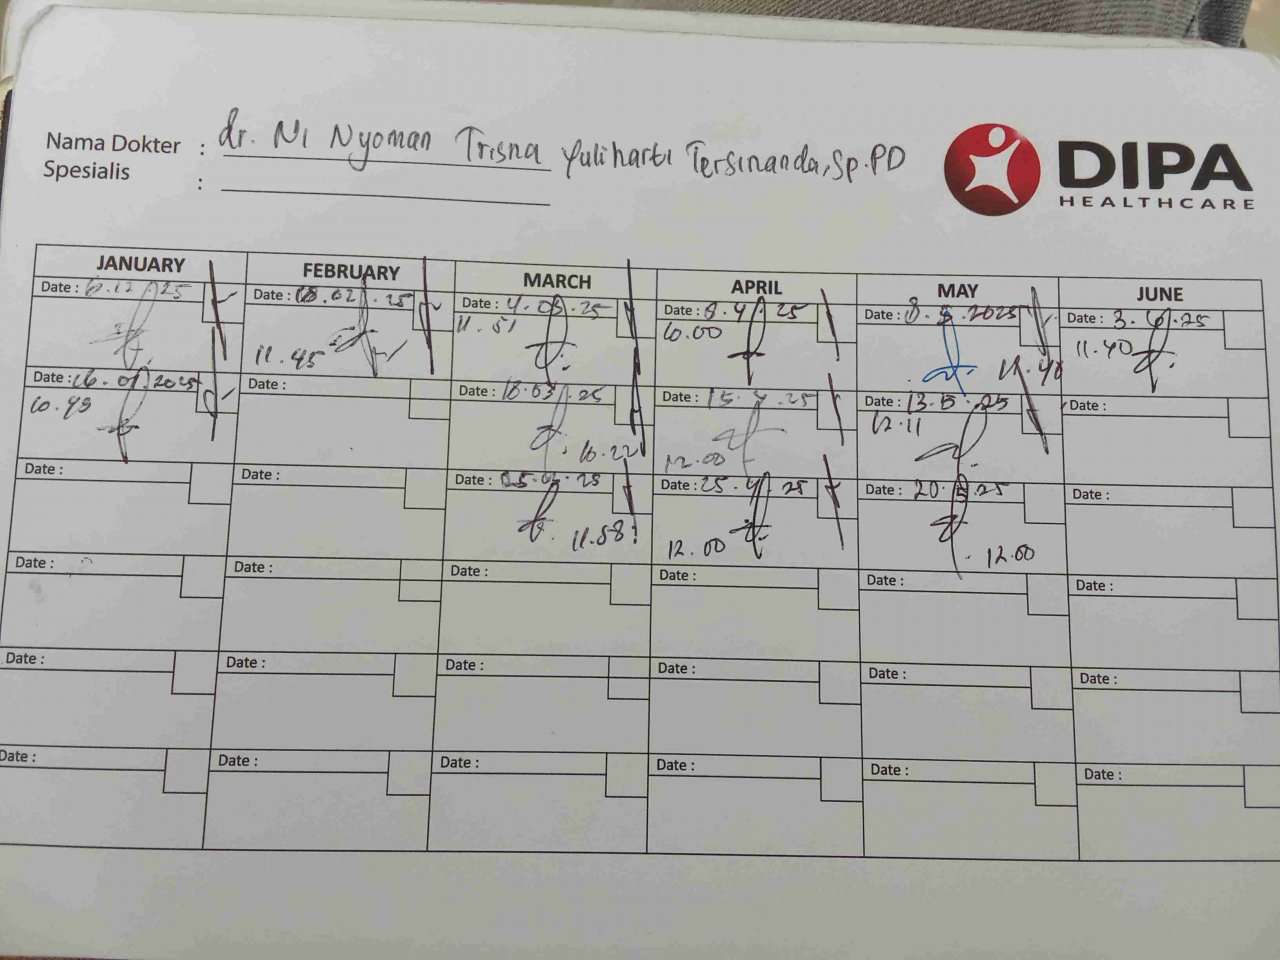 Nama Dokter : dr. Ni Nyoman Trisna Yuliharti Tersinanda, Sp.PD
Spesialis :
DIPA
HEALTHCARE
JANUARY FEBRUARY MARCH APRIL MAY JUNE
Date : Date : 18.02.25 Date : 4.03.25 Date : 8.4.25 Date : 8.5.2025 Date : 3.6.25
11.45 11.51 10.00 11.40 11.40
Date : 16.01.2025 Date : Date : 18.03.25 Date : 15.4.25 Date : 13.5.25 Date :
10.45 10.22 12.00 12.11
Date : Date : Date : Date : 25.4.25 Date : 20.5.25 Date :
11.58 12.00 12.00
Date : Date : Date : Date : Date : Date :
Date : Date : Date : Date : Date : Date :
Date : Date : Date : Date : Date : Date :